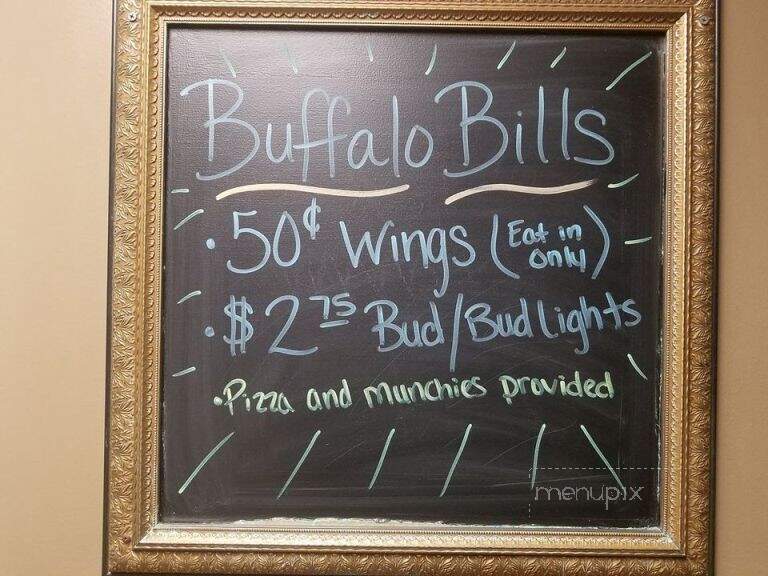 Buffalo Bills
• 50¢ Wings (Eat in only)
• $2 75 Bud/Bud Lights
• Pizza and munchies provided
menupix